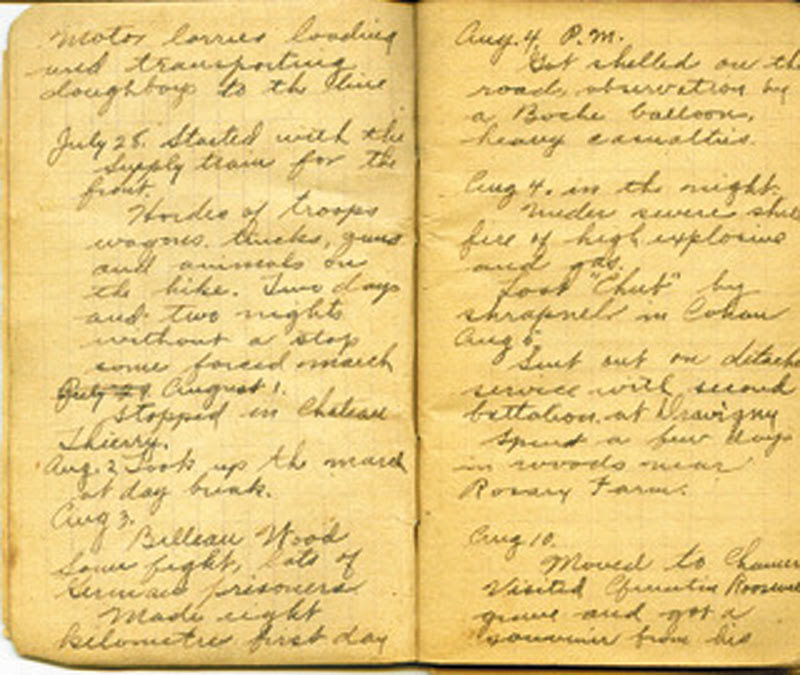 Motor lorries loading
and transporting
doughboys to the line
July 28. Started with the
supply train for the
front.
Hordes of troops
wagons. trucks, guns
and animals on
the hike. Two days
and two nights
without a stop
some forced march
July 29 August 1.
Stopped in Chateau
Thierry.
Aug. 2 Took up the march
at day break.
Aug 3.
Belleau Wood
Some fight, lots of
German prisoners
Made eight
kilometres first day
Aug. 4 P.M.
Got shelled on the
road, observation by
a Boche balloon,
heavy casualties.
Aug 4. in the night.
Under severe shell
fire of high explosive
and gas.
Lost "Chub" by
shrapnel in Cohan
Aug 6.
Sent out on detache
service with second
battalion. at Dravigny
Spent a few days
in woods near
Rosary Farm.
Aug 10.
Moved to Chamer
Visited Quentin Roosevel
grave and got a
souvenir from his